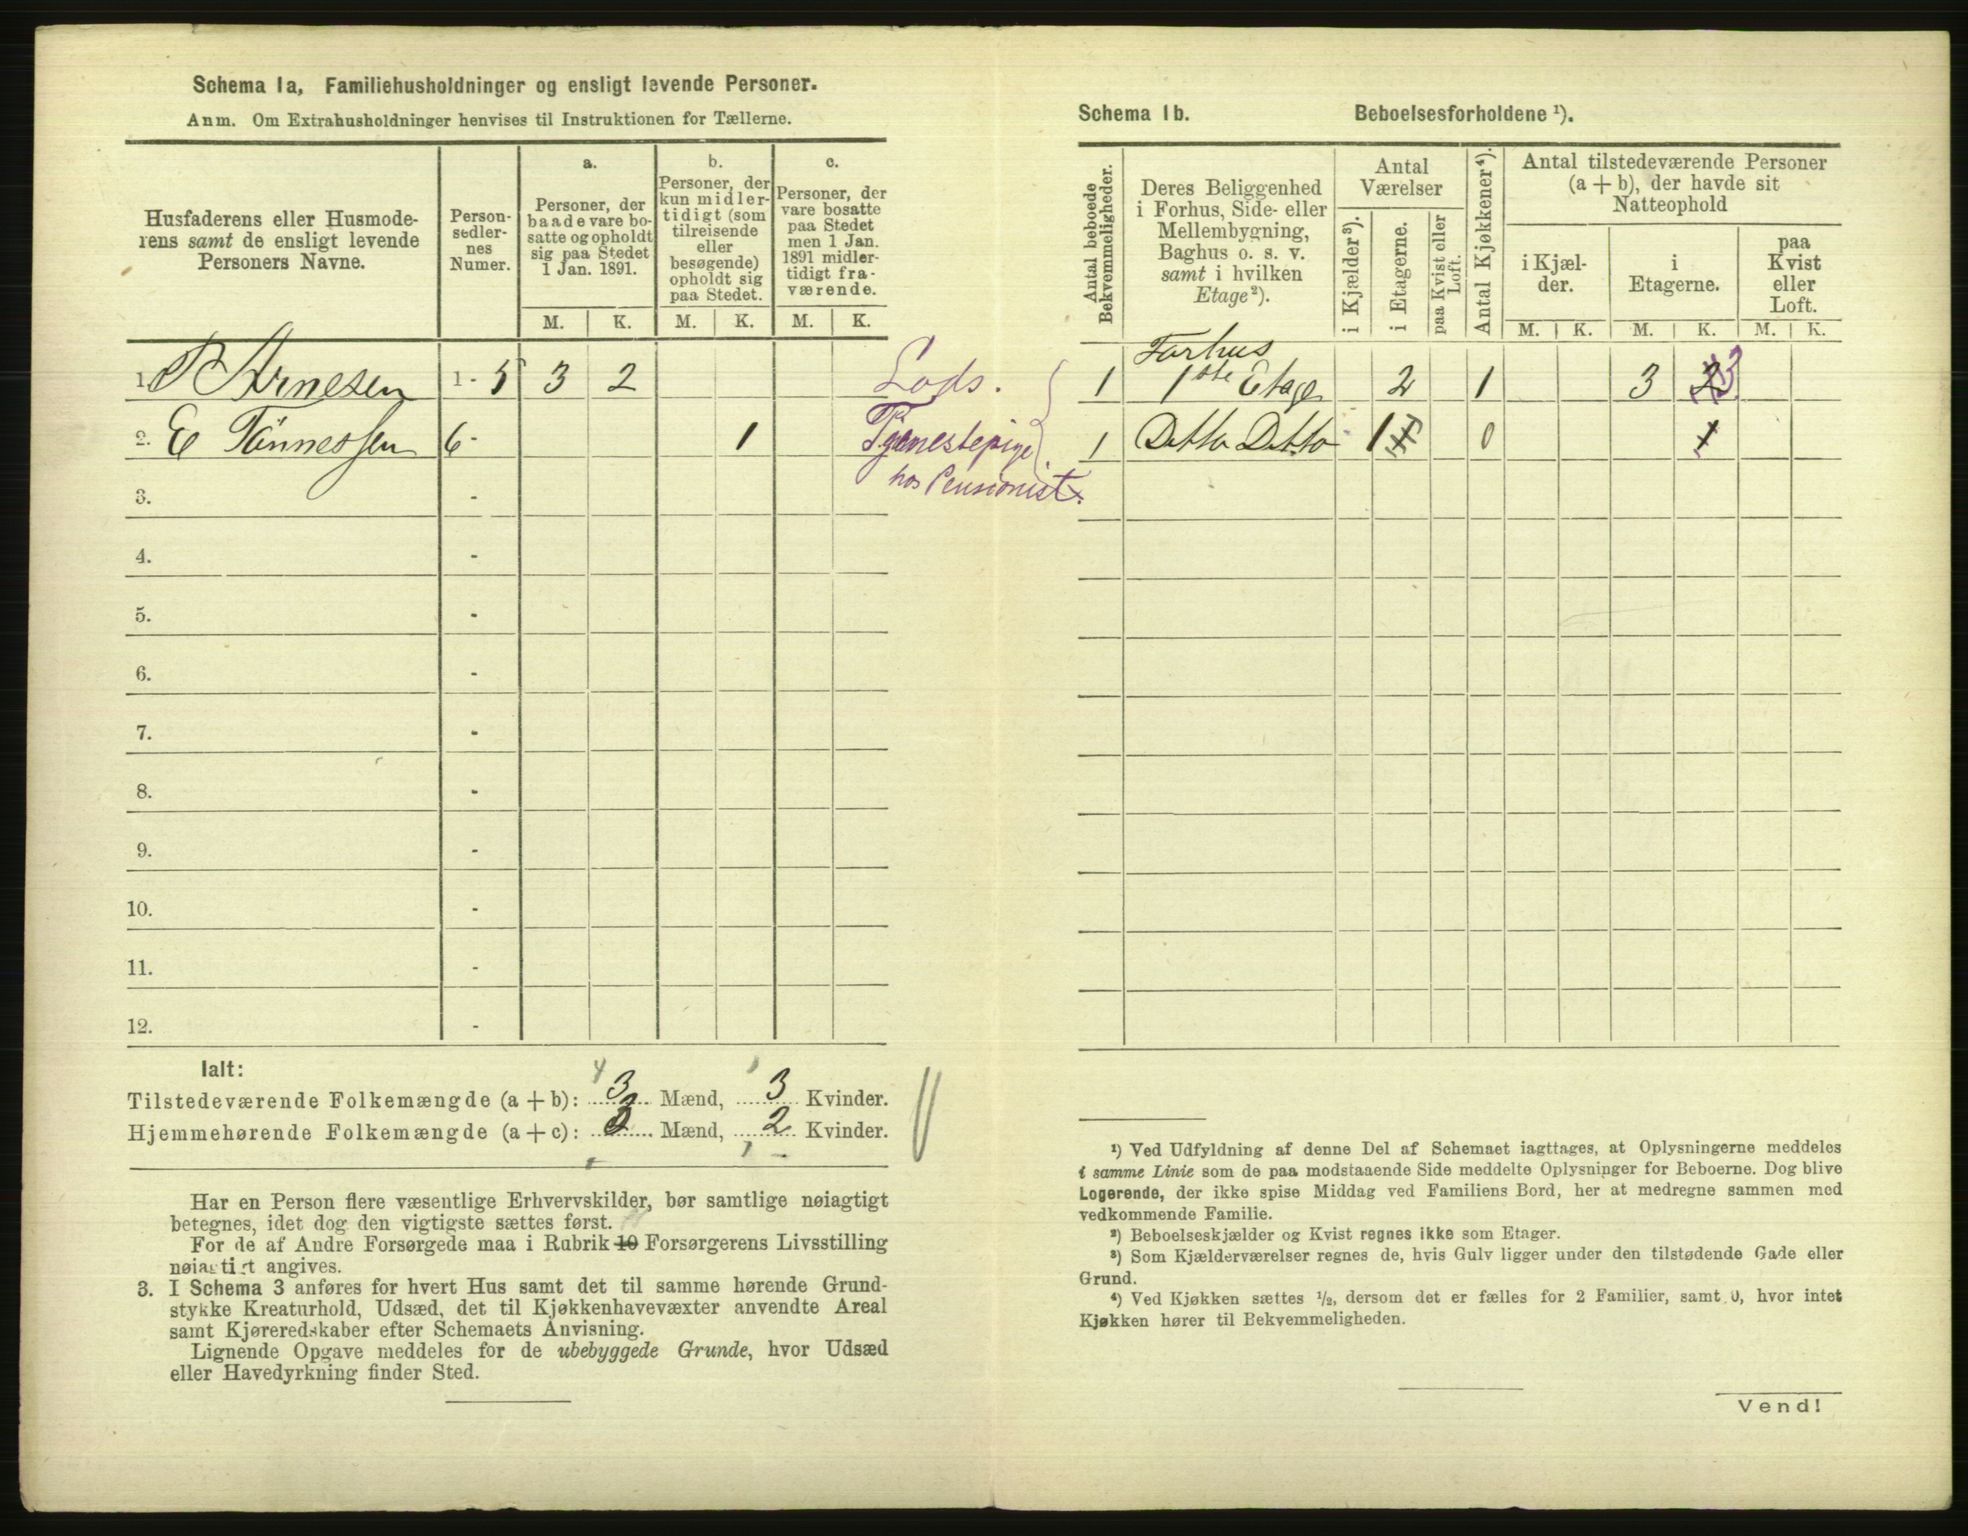 Schema 1a, Familiehusholdninger og ensligt levende Personer.
Anm. Om Extrahusholdninger henvises til Instruktionen for Tællerne.
Husfaderens eller Husmode-
rens samt de ensligt levende
Personers Navne.
Person-
sedler-
nes
Numer.
a.
Personer, der
baade vare bo-
satte og opholdt
sig paa Stedet
1 Jan. 1891.
b.
Personer, der
kun midler-
tidigt (som
tilreisende
eller
besøgende)
opholdt sig
paa Stedet.
c.
Personer, der
vare bosatte
paa Stedet
men 1 Jan.
1891 midler-
tidigt fra-
værende.
M. K. M. K. M. K.
1. P Arnesen 1 - 5 3 2 Lods.
2. E Tønnessen 6 - 1 Tjenestepige
hos Pensionist.
3. -
4. -
5. -
6. -
7. -
8. -
9. -
10. -
11. -
12. -
Ialt:
4 1
Tilstedeværende Folkemængde (a + b): 3 Mænd, 3 Kvinder.
Hjemmehørende Folkemængde (a + c): 3 Mænd, 2 Kvinder.
Har en Person flere væsentlige Erhvervskilder, bør samtlige nøiagtigt
betegnes, idet dog den vigtigste sættes først.
For de af Andre Forsørgede maa i Rubrik 10 Forsørgerens Livsstilling
nøiagtigt angives.
3. I Schema 3 anføres for hvert Hus samt det til samme hørende Grund-
stykke Kreaturhold, Udsæd, det til Kjøkkenhavevæxter anvendte Areal
samt Kjøreredskaber efter Schemaets Anvisning.
Lignende Opgave meddeles for de ubebyggede Grunde, hvor Udsæd
eller Havedyrkning finder Sted.
Schema 1b. Beboelsesforholdene ¹).
Antal beboede
Bekvemmeligheder.
Deres Beliggenhed
i Forhus, Side- eller
Mellembygning,
Baghus o. s. v.
samt i hvilken
Etage²).
Antal
Værelser
i Kjælder³).
i Etagerne.
paa Kvist eller
Loft.
Antal Kjøkkener⁴).
Antal tilstedeværende Personer
(a + b), der havde sit
Natteophold
i Kjæl-
der.
i
Etagerne.
paa
Kvist
eller
Loft.
M. K. M. K. M. K.
Forhus
1 1ste Etage 2 1 3 2 3
1 Ditto Ditto 1 0 1
¹) Ved Udfyldning af denne Del af Schemaet iagttages, at Oplysningerne meddeles
i samme Linie som de paa modstaaende Side meddelte Oplysninger for Beboerne. Dog blive
Logerende, der ikke spise Middag ved Familiens Bord, her at medregne sammen med
vedkommende Familie.
²) Beboelseskjælder og Kvist regnes ikke som Etager.
³) Som Kjælderværelser regnes de, hvis Gulv ligger under den tilstødende Gade eller
Grund.
⁴) Ved Kjøkken sættes ½, dersom det er fælles for 2 Familier, samt 0, hvor intet
Kjøkken hører til Bekvemmeligheden.
Vend!